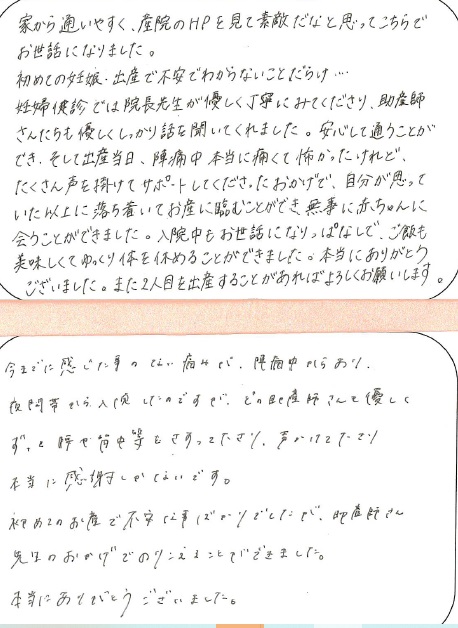 家から通いやすく、産院のHPを見て素敵だなと思ってこちらで
お世話になりました。
初めての妊娠・出産で不安でわからないことだらけ…
妊婦健診では院長先生が優しく丁寧にみてくださり、助産師
さんたちも優しくしっかり話を聞いてくれました。安心して通うことが
でき、そして出産当日、陣痛中本当に痛くて怖かったけれど、
たくさん声を掛けてサポートしてくださったおかげで、自分が思って
いた以上に落ち着いてお産に臨むことができ無事に赤ちゃんに
会うことができました。入院中もお世話になりっぱなしで、ご飯も
美味しくてゆっくり体を休めることができました。本当にありがとう
ございました。また2人目を出産することがあればよろしくお願いします。
今までに感じた事のない痛みが、陣痛中からあり、
夜間帯から入院したのですが、どの助産師さんも優しく
ずっと腰や背中等をさすってくださり、声かけてくださり
本当に感謝しかないです。
初めてのお産で不安な事ばかりでしたが、助産師さん
先生のおかげでのりこえることができました。
本当にありがとうございました。